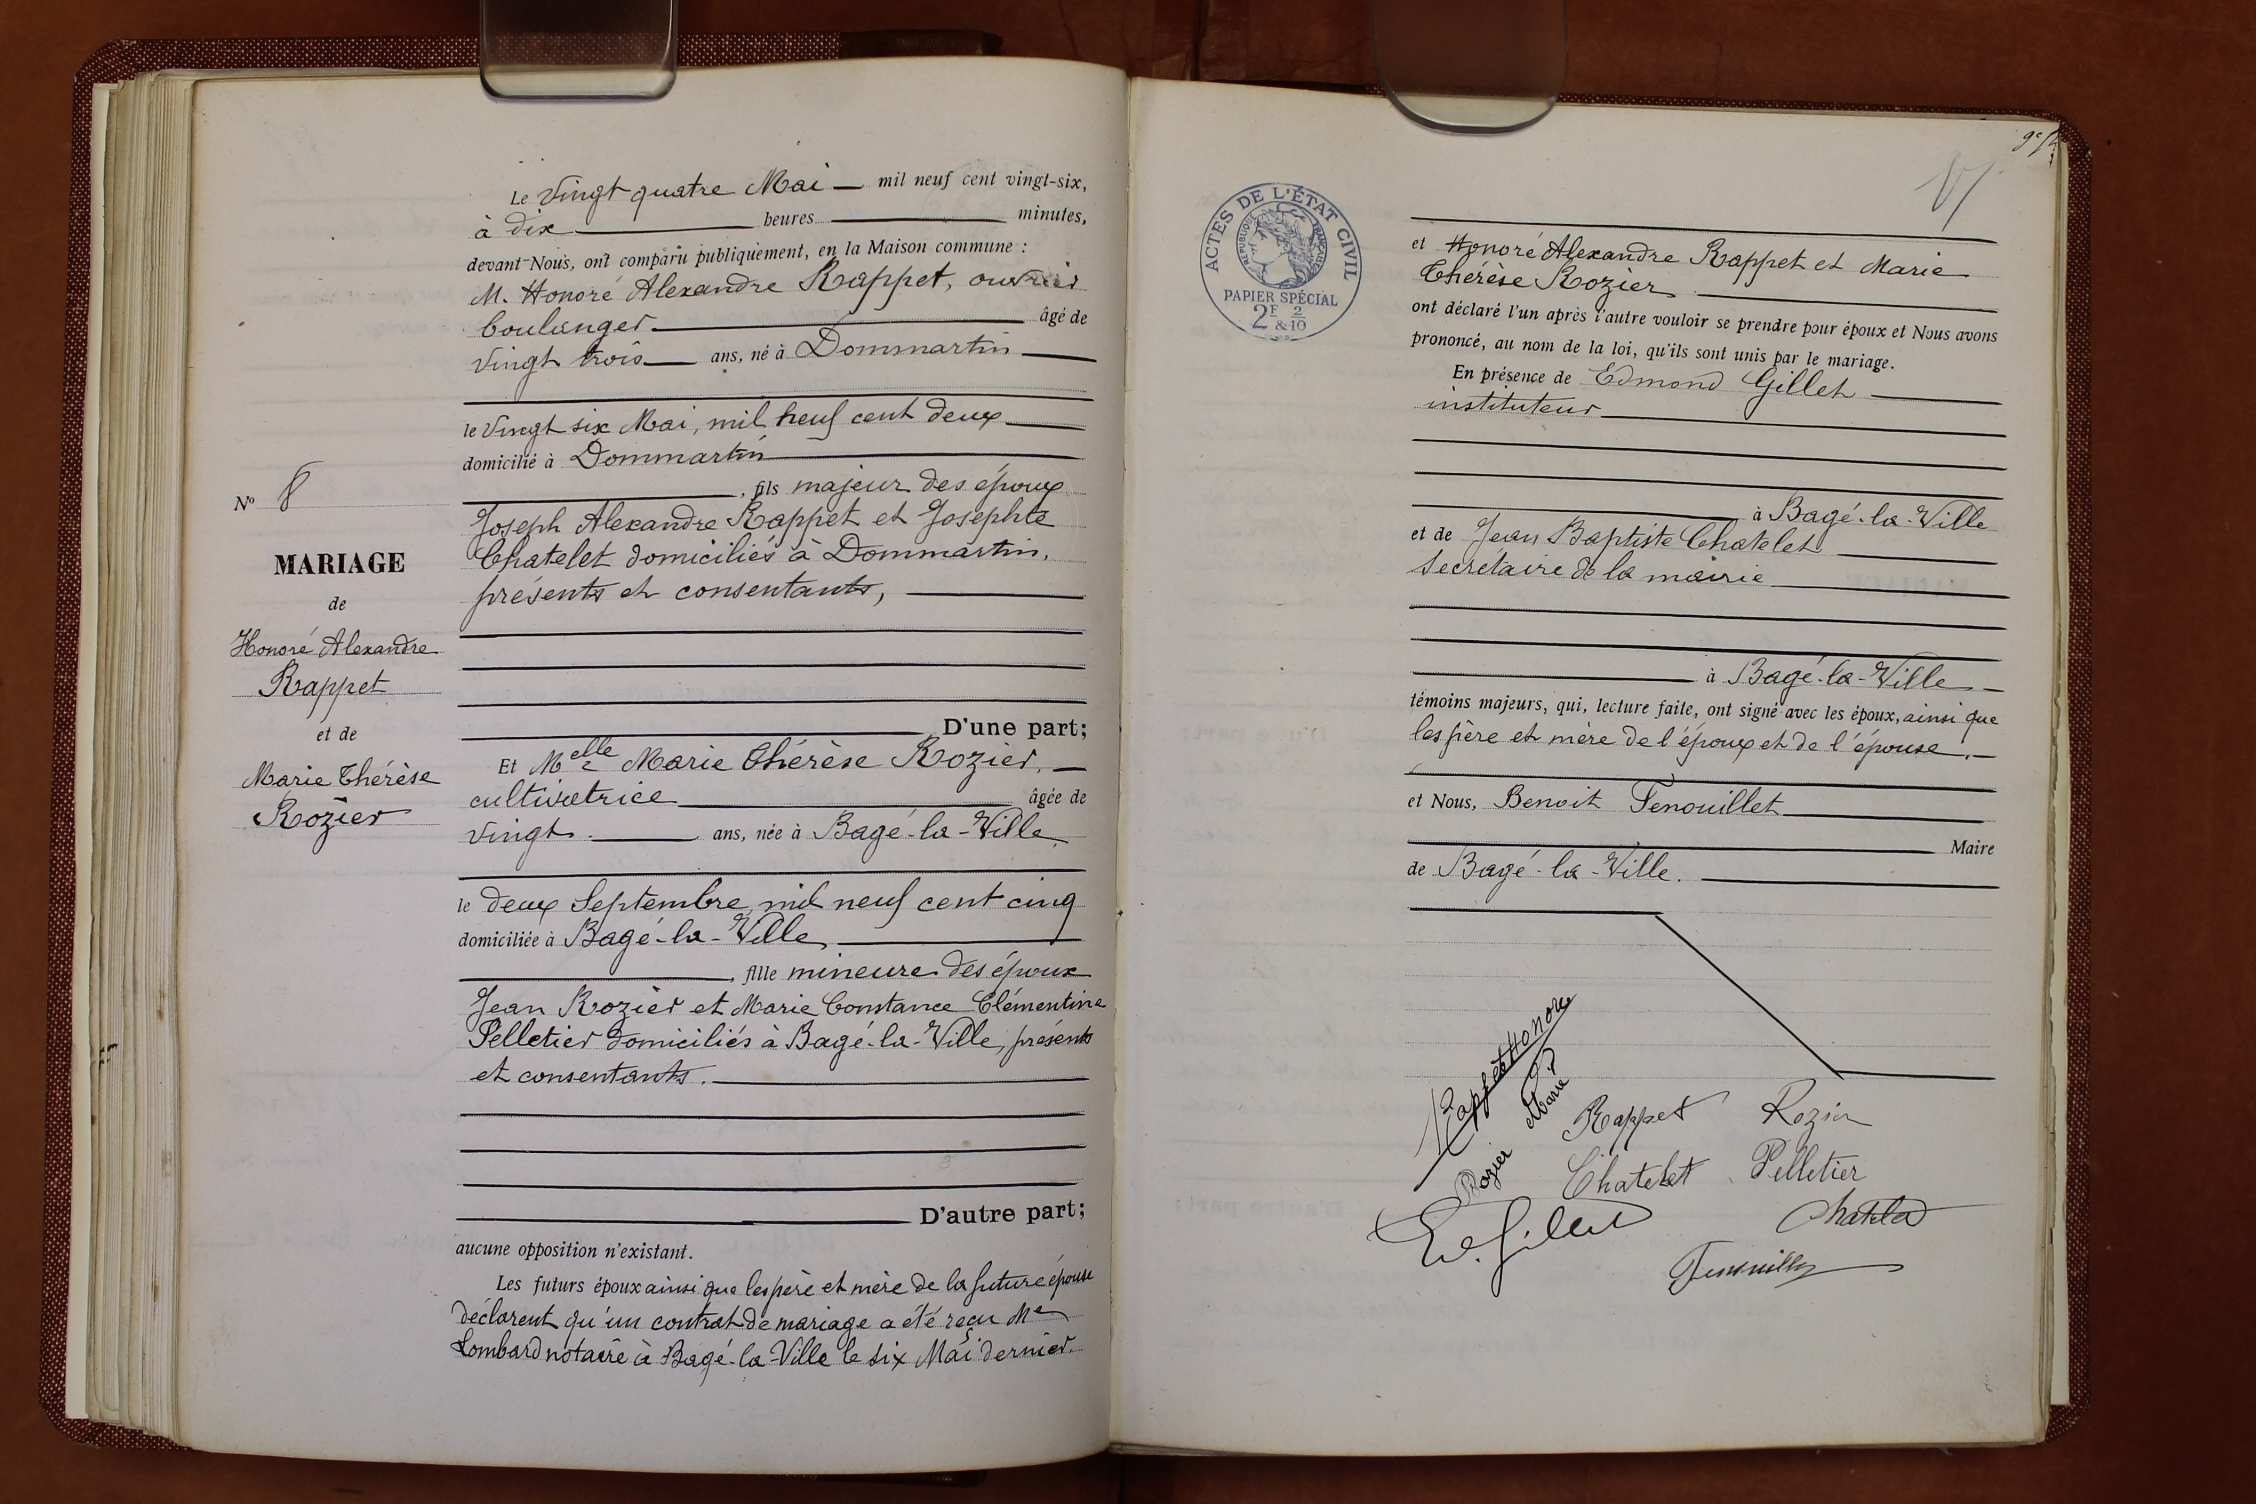 Le vingt quatre Mai mil neuf cent vingt-six,
à dix heures minutes,
devant Nous, ont comparu publiquement, en la Maison commune :
M. Honoré Alexandre Rappet, ouvrier
boulanger âgé de
vingt trois ans, né à Dommartin
le vingt six Mai, mil neuf cent deux
domicilié à Dommartin
, fils majeur des époux
Joseph Alexandre Rappet et Josephte
Chatelet domiciliés à Dommartin,
présents et consentants,
D'une part;
Et Melle Marie Thérèse Rozier,
cultivatrice âgée de
vingt ans, née à Bagé-la-Ville,
le deux Septembre mil neuf cent cinq
domiciliée à Bagé-la-Ville
, fille mineure des époux
Jean Rozier et Marie Constance Clémentine
Pelletier domiciliés à Bagé-la-Ville, présents
et consentants.
D'autre part;
aucune opposition n'existant.
Les futurs époux ainsi que les père et mère de la future épouse
déclarent qu'un contrat de mariage a été reçu Me
Lombard notaire à Bagé-la-Ville le six Mai dernier.
No 8
MARIAGE
de
Honoré Alexandre
Rappet
et de
Marie Thérèse
Rozier
ACTES DE L'ÉTAT CIVIL
RÉPUBLIQUE FRANÇAISE
PAPIER SPÉCIAL
2F 2
&10
et Honoré Alexandre Rappet et Marie
Thérèse Rozier
ont déclaré l'un après l'autre vouloir se prendre pour époux et Nous avons
prononcé, au nom de la loi, qu'ils sont unis par le mariage.
En présence de Edmond Gillet
instituteur
à Bagé-la-Ville
et de Jean Baptiste Chatelet
secrétaire de la mairie
à Bagé-la-Ville
témoins majeurs, qui, lecture faite, ont signé avec les époux, ainsi que
les père et mère de l'époux et de l'épouse.
et Nous, Benoit Fenouillet
Maire
de Bagé-la-Ville.
Rappet Honoré
Rozier Marie
Rappet Rozier
Chatelet Pelletier
Ed. Gillet Chatelet
Fenouillet